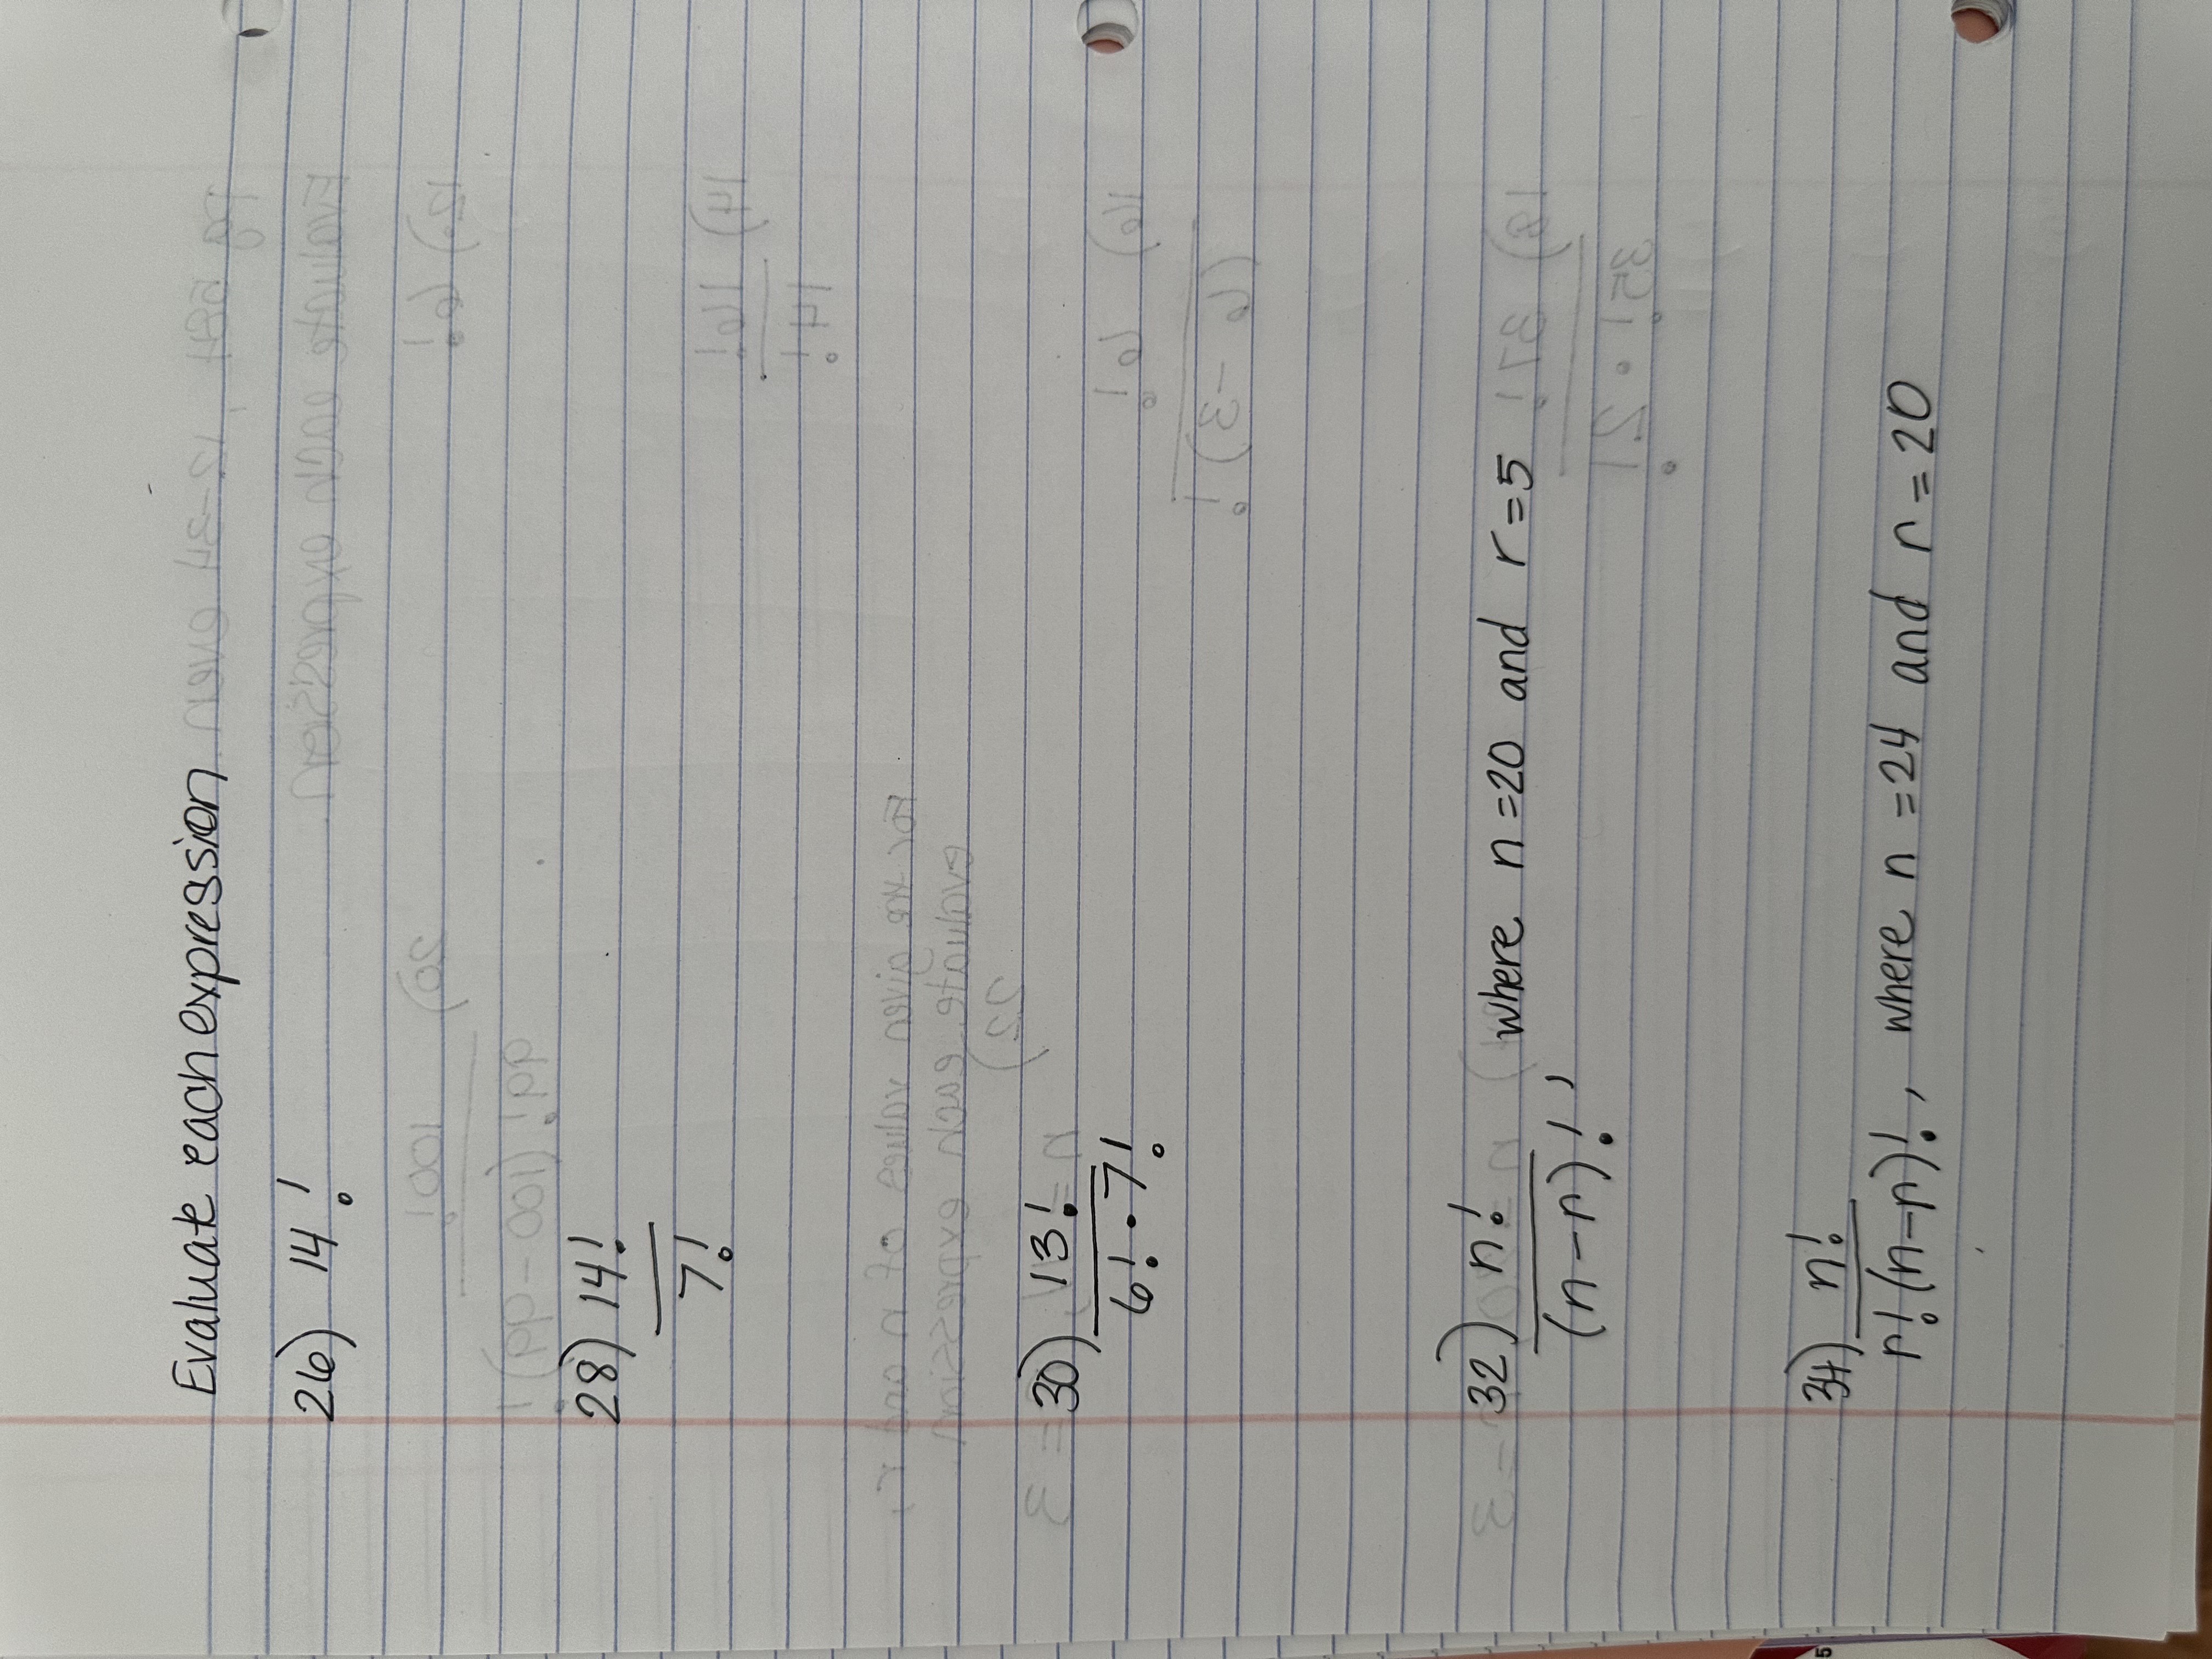 Evaluate each expression
26) 14!
28) 14!
7!
30) 13!
6! · 7!
32) n!
(n-r)!, where n=20 and r=5
34) n!
r!(n-r)!, where n=24 and r=20